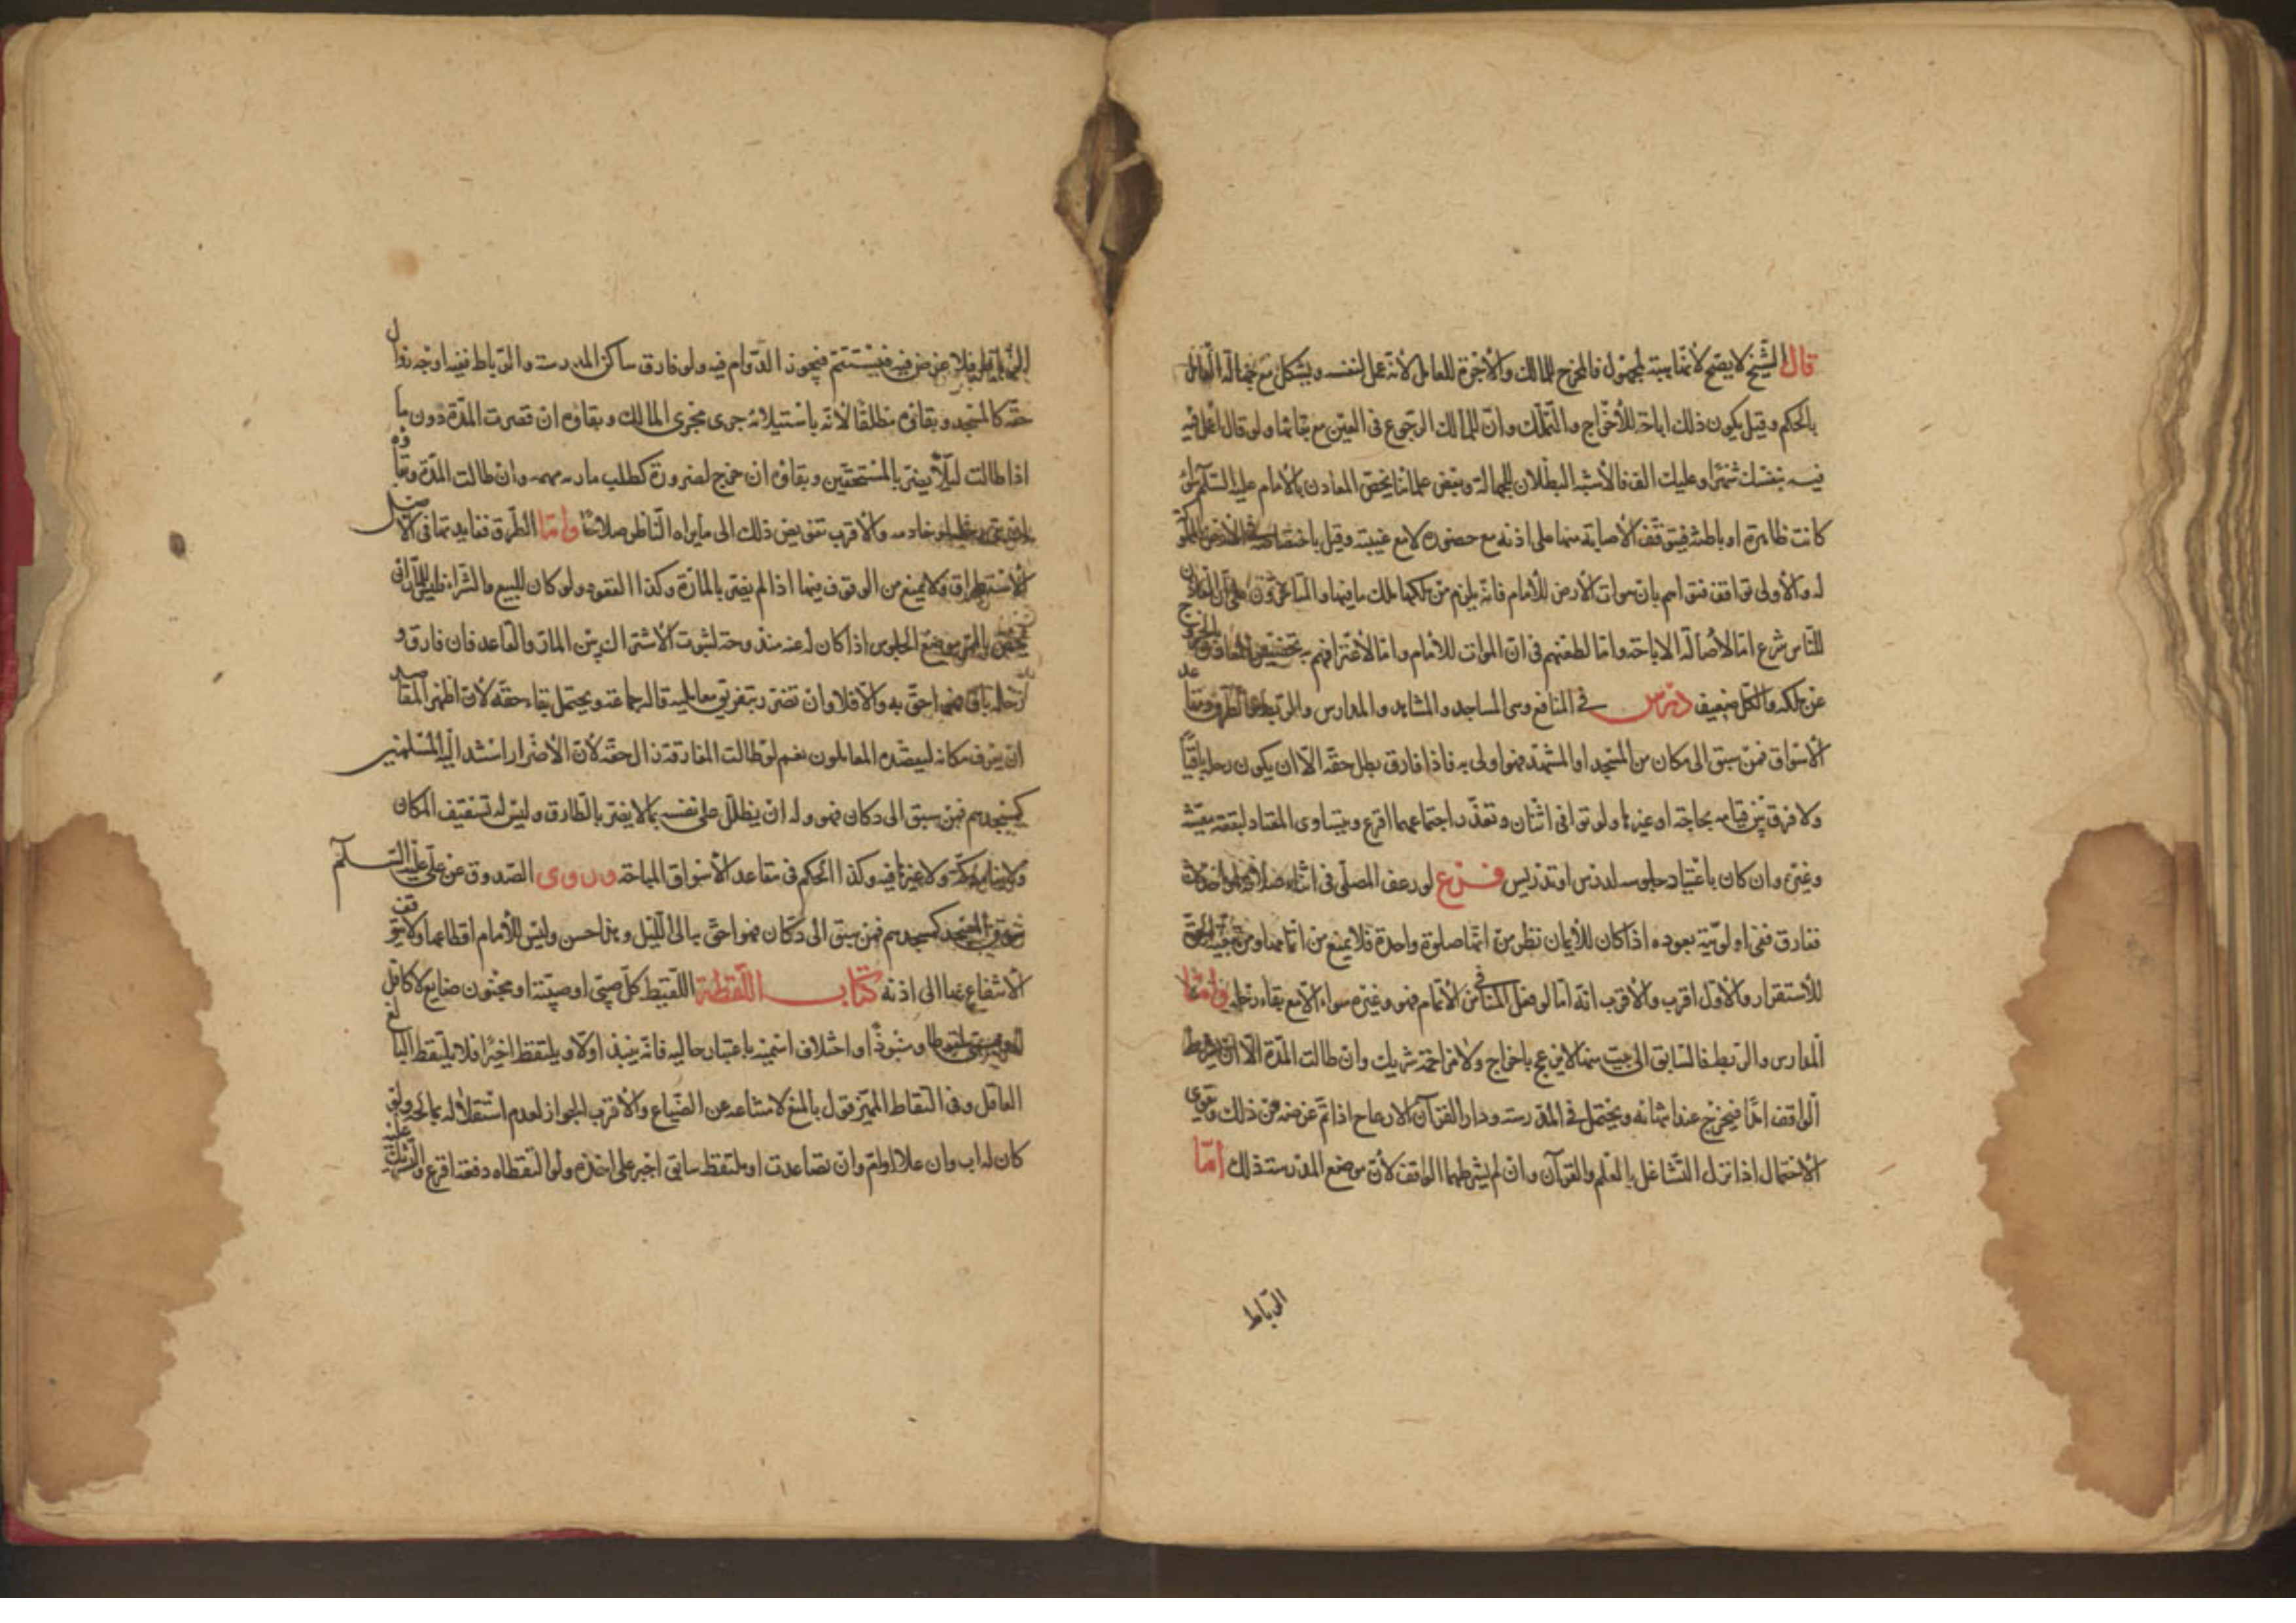 قال الشيخ لا يصح لانها هبة لمجهول فالمخرج للمالك والاجرة للعامل لانه عمل لنفسه ويشكل مع جهالة العامل
بالحكم وقيل يكون ذلك اباحة للاخراج والتملك وان للمالك الرجوع فى العين مع بقائها ولو قال اعمل فيه
بنفسك شهرا وعليك الف فالاشبه البطلان للجهالة وبعض علمائنا يخص المعادن بالامام عليه السلم سواء
كانت ظاهرة او باطنة فيتوقف الاصابة منها على اذنه مع حضوره لا مع غيبته وقيل باختصاصه
له والاولى توافق فتواهم بان موات الارض للامام فانه يلزم من ملكها ملك ما فيها والمتاخرون على ان المعادن
للناس شرع اما لاصالة الاباحة واما لطعنهم فى ان الموات للامام واما لاعترافهم به تخصيص المعادن بالخروج
عن ملكه والكل ضعيف درس فى المنافع وهى المساجد والمشاهد والمدارس والربط والطرق ومقاعد
الاسواق فمن سبق الى مكان من المسجد او المشهد فهو اولى به فاذا فارق بطل حقه الا ان يكون رحله باقيا
ولا فرق بين قيامه بحاجة او غيرها ولو توافى اثنان وتعذر اجتماعهما اقرع ويتساوى المعتاد لبقعة بعينه
وغيره وان كان باعتياد جلوسه لدرس او تدريس فرع لو رعف المصلى فى اثناء صلاته او احدث
ففارق ففى اولويته بعوده اذا كان للايمان نظر من انها صلوة واحدة فلا يمنع من اتمامها ومن
للاستقرار والاول اقرب والاقرب انه اما لو فعل المنافى من الاتمام فهو وغيره سواء الا مع بقاء رحله واما
المدارس والربط فالسابق الى بيت منها لا يزعج باخراج ولا مزاحمة شريك وان طالت المدة الا ان يشترط
الواقف امدا فيخرج عند اثباته ويحتمل فى المدرسة ودار القرآن الازعاج اذا تم غرضه من ذلك ويقوى
الاحتمال اذا ترك التشاغل بالعلم والقرآن وان لم يشترطهما الواقف لان موضع المدرسة ذلك اما
الرباط
الرباط فلا غرض فيه فيستتم فيجوز الدوام فيه ولو فارق ساكن المدرسة والرباط ففيه اوجه زوال
حقه كالمسجد وبقاؤه مطلقا لانه باستيلائه جرى مجرى المالك وبقاؤه ان قصرت المدة دون ما
اذا طالت لئلا يضر بالمستحقين وبقاؤه ان خرج لضرورة كطلب ماربه مهمه وان طالت المدة وبقاؤه
خادمه والاقرب تفويض ذلك الى ما يراه الناظر صلاحا واما الطرق ففايدتها فى الاصل
الاستطراق ولا يمنع من الوقوف فيها اذا لم يضر بالمارة وكذا القعود ولو كان للبيع والشراء فليس للمار ان
يخص بالمر بموضع الجلوس اذا كان له عنه مندوحة لثبوت الاشتراك بين المار والقاعد فان فارق و
رحله باق فهو احق به والا فلا وان تضرر بتفريق معامليه قاله جماعة ويحتمل بقاء حقه لان اظهر المقاصد
ان يعرف مكانه ليقصده المعاملون نعم لو طالت المفارقة زال حقه لان الاضرار استند اليه المسلمين
كمسجدهم فمن سبق الى دكان فهو وله ان يظلل على نفسه بما لا يضر بالطارق وليس له تسقيف المكان
ولا بناء دكة ولا غيرها فيه وكذا الحكم فى مقاعد الاسواق المباحة وروى الصدوق عن على عليه السلم
سوق كمسجدهم فمن سبق الى دكان فهو احق به الى الليل وهذا حسن وليس للامام اقطاعها ولا يتوقف
الانتفاع بها الى اذنه كتاب اللقطة اللقيط كل صبى او صبية او مجنون ضايع لا كافل
له ويسمى ملقوطا ومنبوذا واختلاف اسميه باعتبار حاليه فانه ينبذ اولا ويلتقط اخيرا فلا يلتقط البالغ
العاقل وفى التقاط المميز قول بالمنع لامتناعه عن الضياع والاقرب الجواز لعدم استقلاله بماله ولو
كان له اب وان علا او ام وان تصاعدت او ملتقط سابق اجبر على اخذه ولو التقطاه دفعة اقرع والتشريك